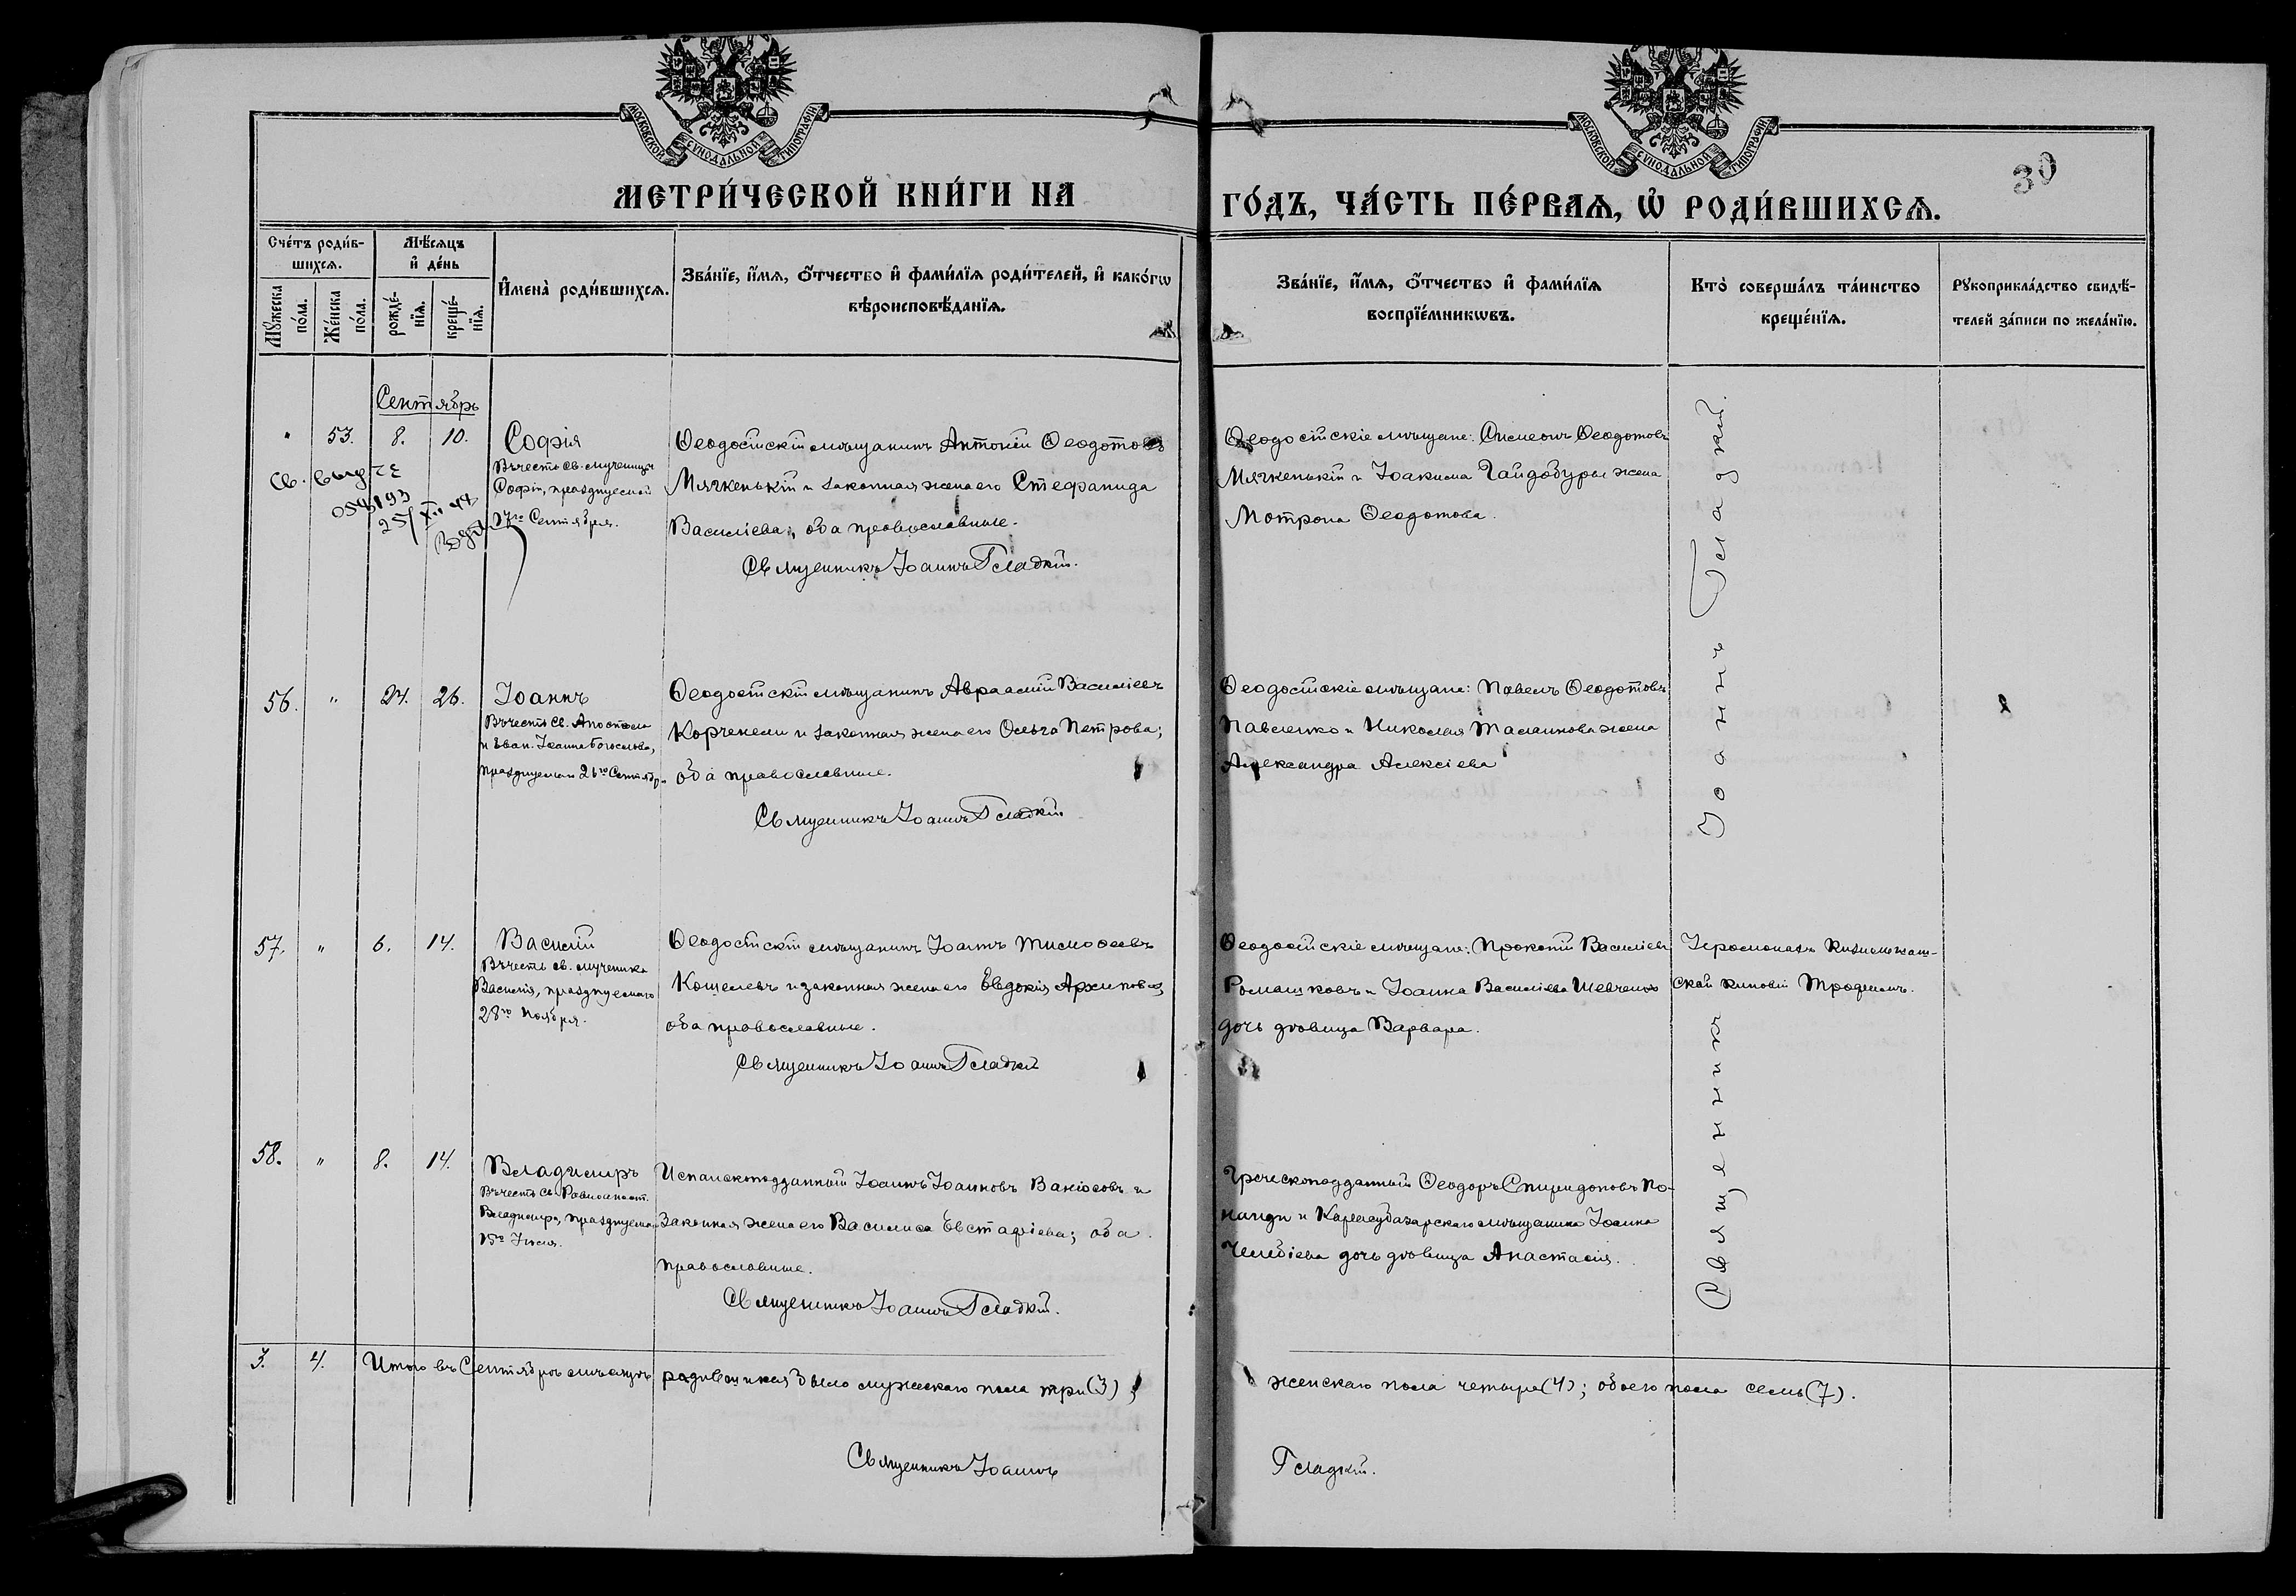 МОСКОВСКОЙ СУНОДАЛЬНОЙ ТИПОГРАФІИ
МОСКОВСКОЙ СУНОДАЛЬНОЙ ТИПОГРАФІИ
30
МЕТРИ́ЧЕСКОЙ КНИ́ГИ НА
ГО́ДЪ, ЧА́СТЬ ПЕ́РВАѦ, Ѡ҆ РОДИ́ВШИХСѦ.
Сче́тъ роди́вшихсѧ.
Мꙋ́жеска по́ла.
Же́нска по́ла.
Мѣ́сѧцъ и҆ де́нь
рожде́нїѧ.
креще́нїѧ.
И҆мена̀ роди́вшихсѧ.
Зва́нїе, и҆́мѧ, ѻ҆́тчество и҆ фами́лїѧ роди́телей, и҆ како́гѡ
вѣроисповѣ́данїѧ.
Зва́нїе, и҆́мѧ, ѻ҆́тчество и҆ фами́лїѧ
воспрїе́мникѡвъ.
Кто̀ соверша́лъ та́инство
креще́нїѧ.
Рꙋкоприкла́дство свидѣ́-
телей за́писи по жела́нїю.
Сентябрь
" 53. 8. 10.
Софія
Въ честь св. мученицы
Софіи, празднуемой
17го Сентября.
Св. выд
25/XII 47
Ѳеодосійскій мѣщанинъ Антоній Ѳеодотовъ
Мягкенькій и законная жена его Стефанида
Василіева; оба православные.
Священникъ Іоаннъ Гладкій.
Ѳеодосійскіе мѣщане: Симеонъ Ѳеодотовъ
Мягкенькій и Іоакима Гайдобуры жена
Мотрона Ѳеодотова.
56. " 24. 26.
Іоаннъ
Въ честь св. Апостола
и Еван. Іоанна Богослова,
празднуемаго 26го Сентябр.
Ѳеодосійскій мѣщанинъ Авраамій Василіевъ
и законная жена его Ольга Петрова;
оба православные.
Священникъ Іоаннъ Гладкій
Ѳеодосійскіе мѣщане: Павелъ Ѳеодотовъ
Павленко и Николая Таланнова жена
Александра Алексіева
57. " 6. 14.
Василій
Въ честь св. мученика
Василія, празднуемаго
28го Ноября.
Ѳеодосійскій мѣщанинъ Іоаннъ Тимоѳеевъ
Кошелевъ и законная жена его Евдокія Архипова;
оба православные.
Священникъ Іоаннъ Гладкій
Ѳеодосійскіе мѣщане: Прокопій Василіевъ
Ромашковъ и Іоанна Василіева Шевченко
дочь дѣвица Варвара.
Іеромонахъ
ской киновіи Трофимъ.
58. " 8. 14.
Владимиръ
Въ честь св. Равноапост.
Владимира, празднуемаго
15го Іюля.
Испанскоподданный Іоаннъ Іоанновъ и
законная жена его Василиса Евстафіева; оба
православные.
Священникъ Іоаннъ Гладкій.
Греческоподданный Ѳеодоръ Спиридоновъ По-
нанди и Карасубазарскаго мѣщанина Іоанна
Челебіева дочь дѣвица Анастасія.
Священникъ Іоаннъ Гладкій.
3. 4. Итого въ Сентябрѣ мѣсяцѣ родившихся было мужескаго пола три (3);
женскаго пола четыре (4); обоего пола семь (7).
Священникъ Іоаннъ
Гладкій.